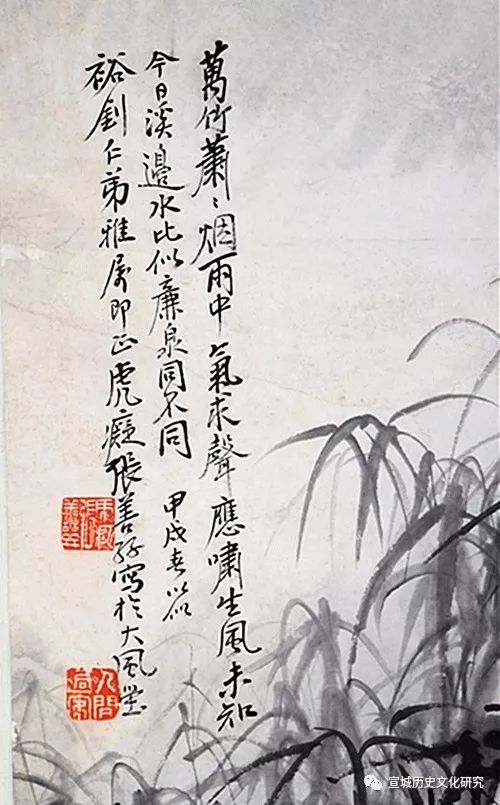 萬竹蕭〻烟雨中氣求聲應嘯生風未知
今日溪邊水比似廉泉同不同 甲戌春以似
裕釗仁弟雅属即正虎癡張善孖寫於大風堂
宣城历史文化研究